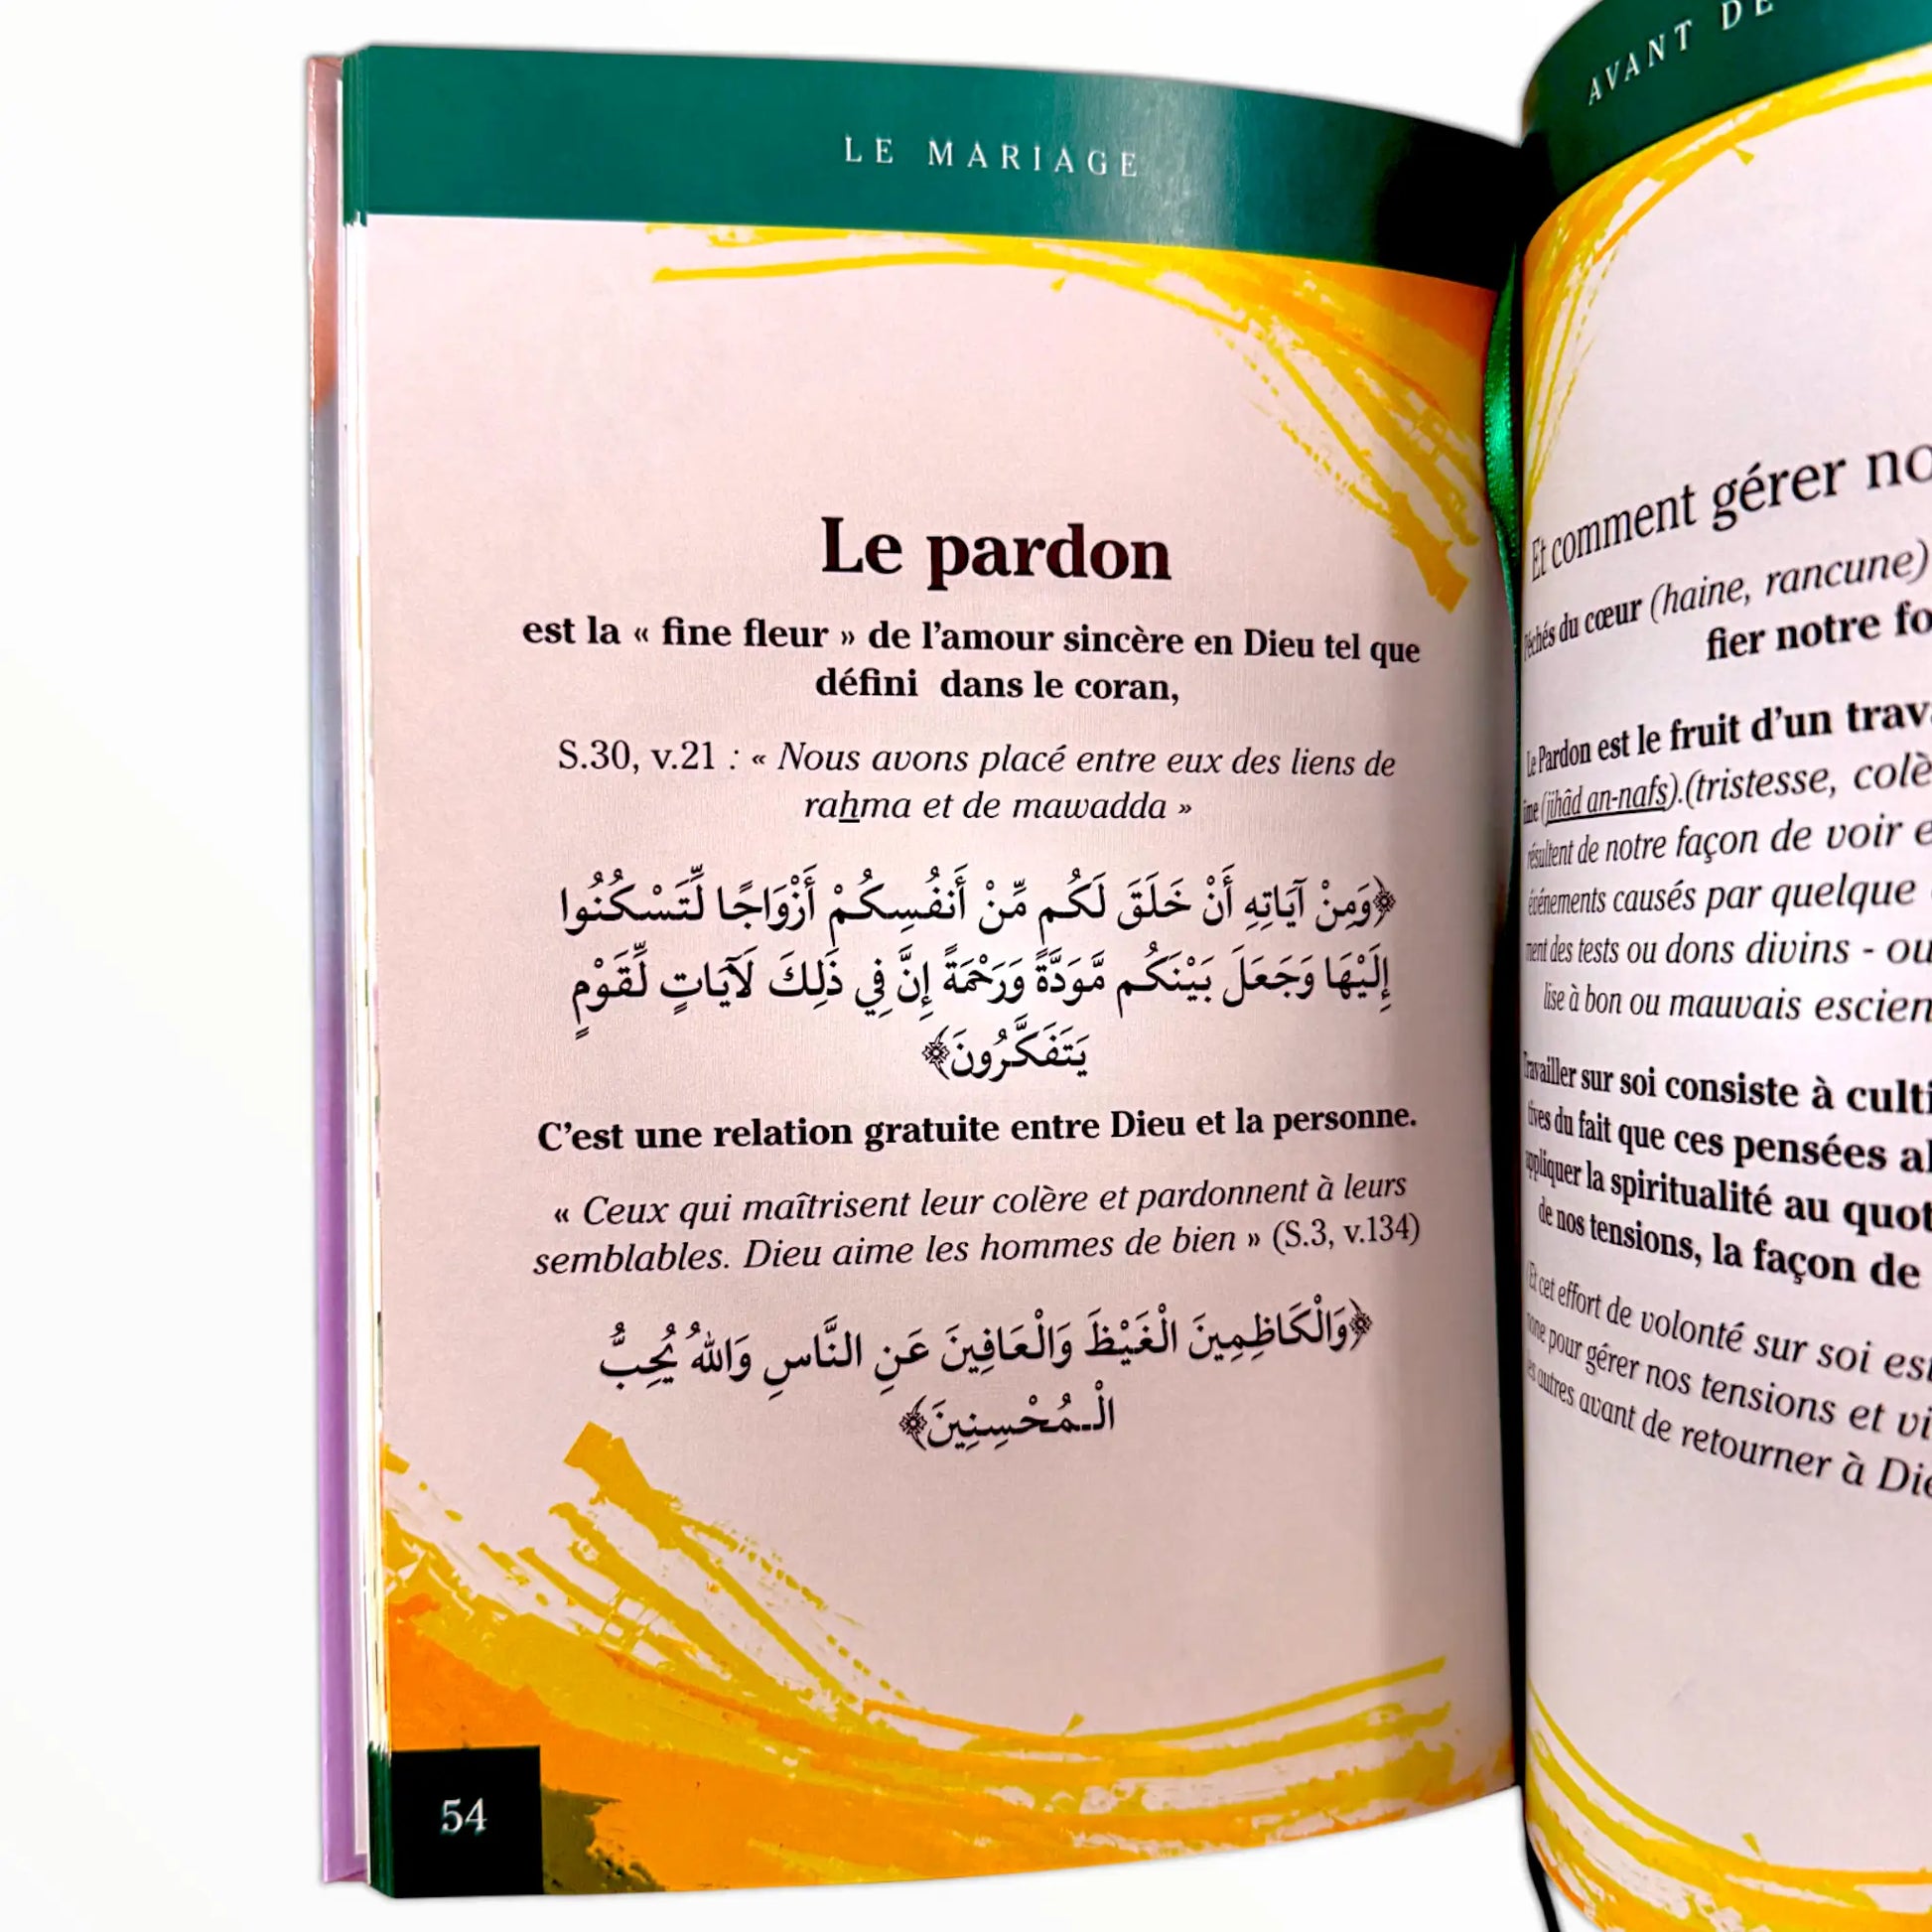 LE MARIAGE
Le pardon
est la « fine fleur » de l’amour sincère en Dieu tel que
défini dans le coran,
S.30, v.21 : « Nous avons placé entre eux des liens de
rahma et de mawadda »
﴿وَمِنْ آيَاتِهِ أَنْ خَلَقَ لَكُم مِّنْ أَنفُسِكُمْ أَزْوَاجًا لِّتَسْكُنُوا
إِلَيْهَا وَجَعَلَ بَيْنَكُم مَّوَدَّةً وَرَحْمَةً إِنَّ فِي ذَلِكَ لَآيَاتٍ لِّقَوْمٍ
يَتَفَكَّرُونَ﴾
C’est une relation gratuite entre Dieu et la personne.
« Ceux qui maîtrisent leur colère et pardonnent à leurs
semblables. Dieu aime les hommes de bien » (S.3, v.134)
﴿وَالْكَاظِمِينَ الْغَيْظَ وَالْعَافِينَ عَنِ النَّاسِ وَاللهُ يُحِبُّ
الْـمُحْسِنِينَ﴾
54
AVANT DE
Et comment gérer
du cœur (haine, rancune)
fier notre
Le Pardon est le fruit d’un
(jihâd an-nafs).(tristesse,
résultent de notre façon de voir
événements causés par quelque
des tests ou dons divins - ou
lise à bon ou mauvais
Travailler sur soi consiste à
du fait que ces pensées
appliquer la spiritualité au
de nos tensions, la façon de
Et cet effort de volonté sur soi
pour gérer nos tensions et
autres avant de retourner à